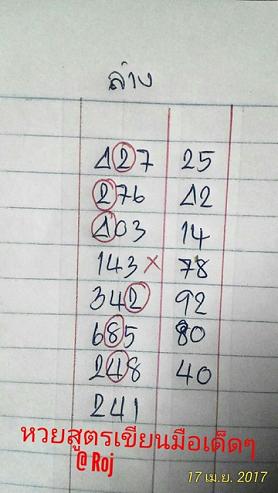 ล่าง
127 25
276 12
103 14
143 × 78
342 92
685 80
248 40
241
หวยสูตรเขียนมือเด็ดๆ
@ Roj
17 เม.ย. 2017